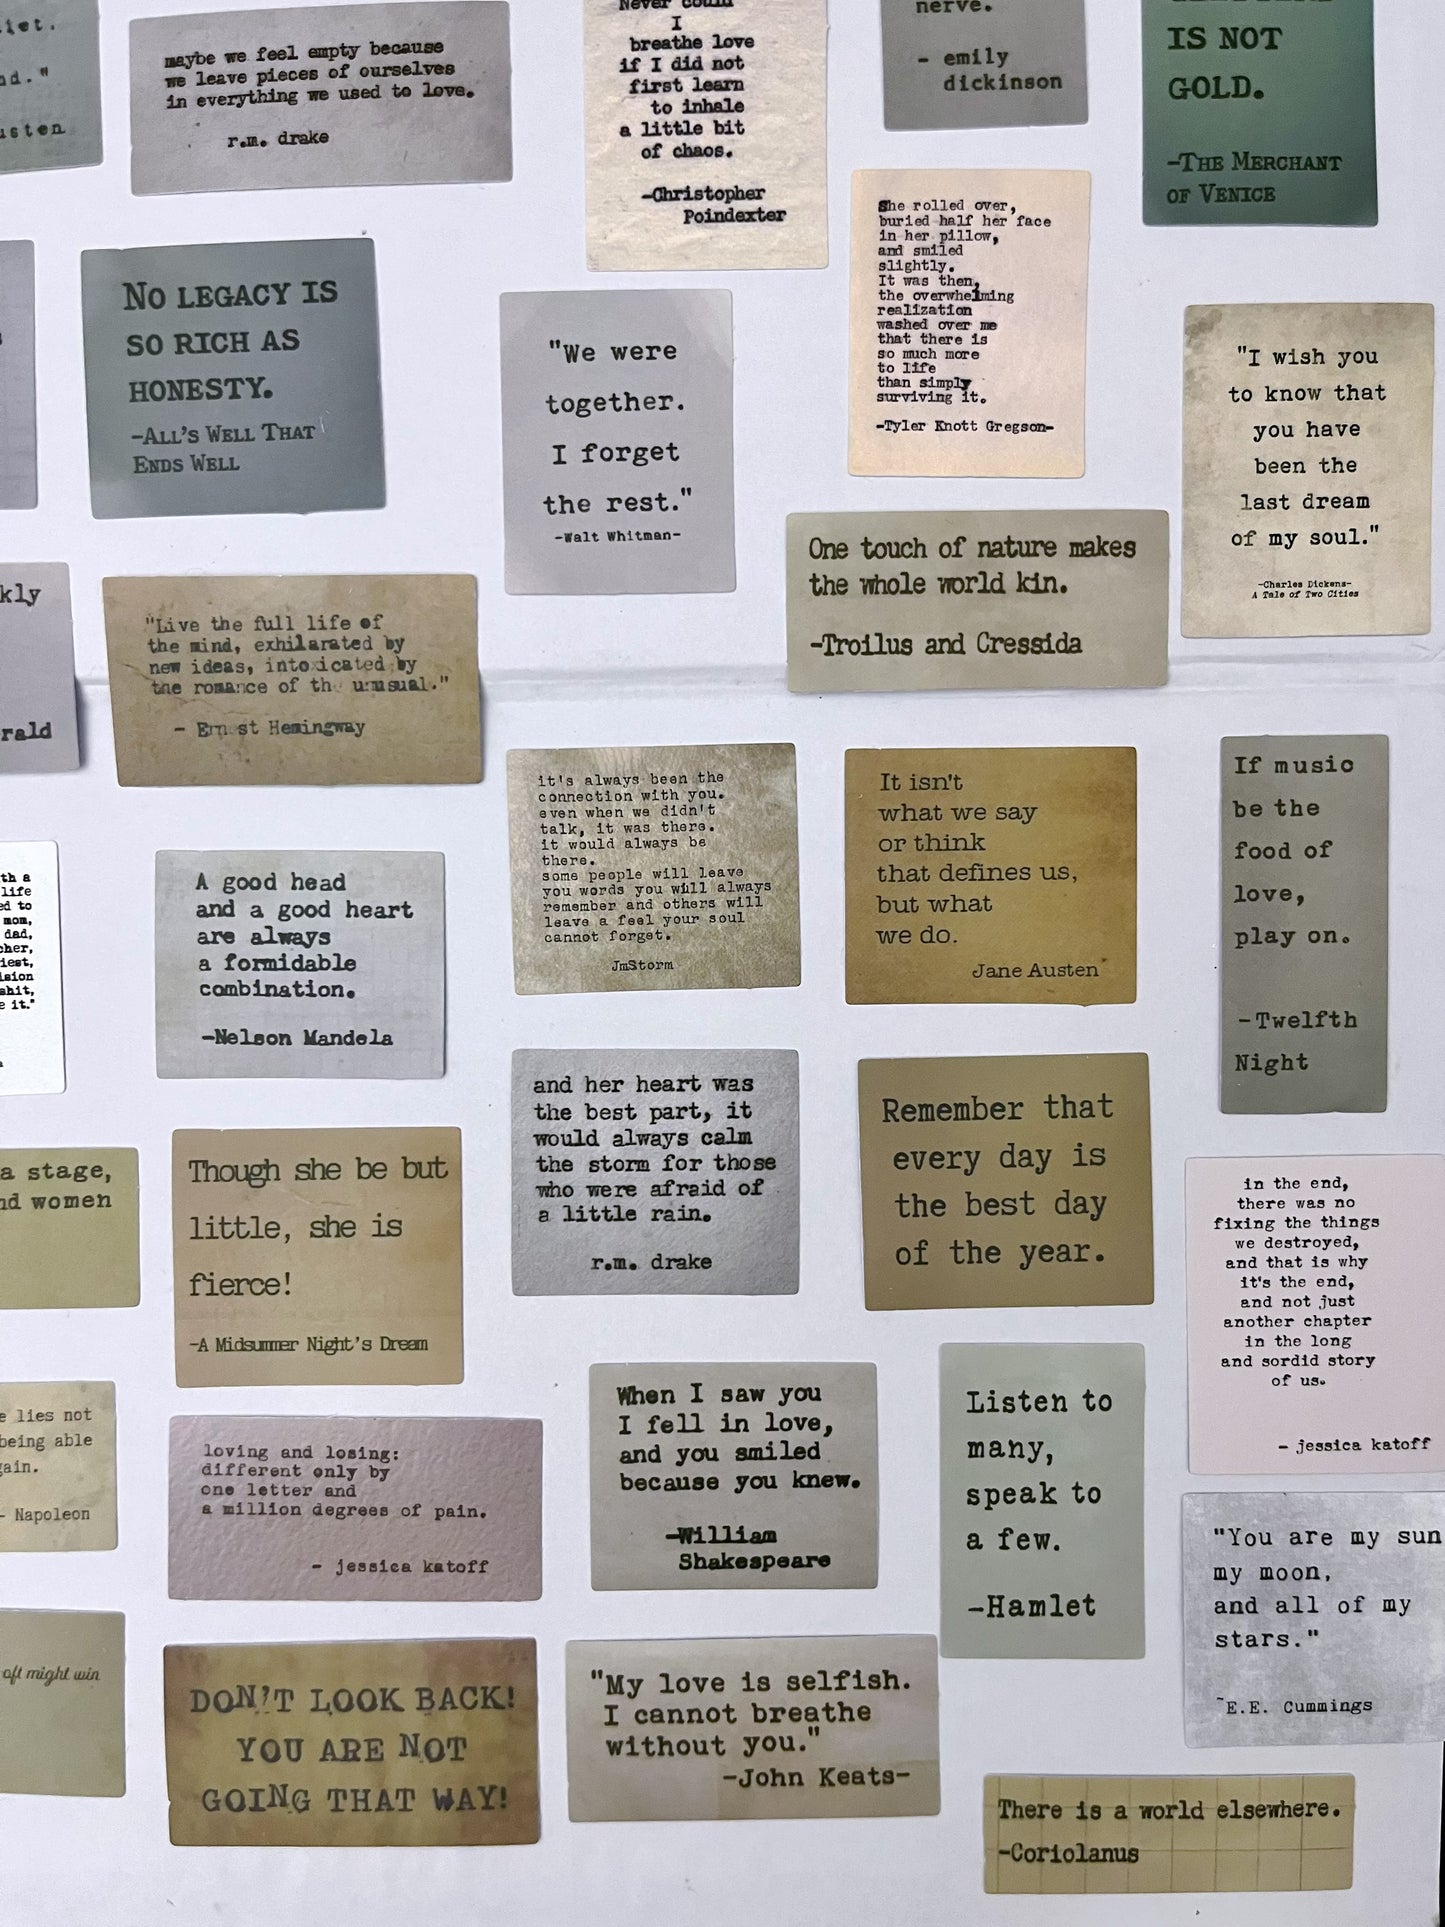 iet.
nd."
usten
maybe we feel empty because
we leave pieces of ourselves
in everything we used to love.
r.m. drake
Never could
I
breathe love
if I did not
first learn
to inhale
a little bit
of chaos.
-Christopher
Poindexter
nerve.
- emily
dickinson
IS NOT
GOLD.
-THE MERCHANT
OF VENICE
NO LEGACY IS
SO RICH AS
HONESTY.
-ALL'S WELL THAT
ENDS WELL
"We were
together.
I forget
the rest."
-Walt Whitman-
She rolled over,
buried half her face
in her pillow,
and smiled
slightly.
It was then,
the overwhelming
realization
washed over me
that there is
so much more
to life
than simply
surviving it.
-Tyler Knott Gregson-
"I wish you
to know that
you have
been the
last dream
of my soul."
-Charles Dickens-
A Tale of Two Cities
One touch of nature makes
the whole world kin.
-Troilus and Cressida
kly
rald
"Live the full life of
the mind, exhilarated by
new ideas, intoxicated by
the romance of the unusual."
- Ernest Hemingway
it's always been the
connection with you.
even when we didn't
talk, it was there.
it would always be
there.
some people will leave
you words you will always
remember and others will
leave a feel your soul
cannot forget.
JmStorm
It isn't
what we say
or think
that defines us,
but what
we do.
Jane Austen
If music
be the
food of
love,
play on.
-Twelfth
Night
th a
life
ed to
mom,
dad,
cher,
iest,
ision
shit,
e it."
A good head
and a good heart
are always
a formidable
combination.
-Nelson Mandela
and her heart was
the best part, it
would always calm
the storm for those
who were afraid of
a little rain.
r.m. drake
Remember that
every day is
the best day
of the year.
a stage,
nd women
Though she be but
little, she is
fierce!
-A Midsummer Night's Dream
in the end,
there was no
fixing the things
we destroyed,
and that is why
it's the end,
and not just
another chapter
in the long
and sordid story
of us.
- jessica katoff
e lies not
being able
gain.
- Napoleon
loving and losing:
different only by
one letter and
a million degrees of pain.
- jessica katoff
When I saw you
I fell in love,
and you smiled
because you knew.
-William
Shakespeare
Listen to
many,
speak to
a few.
-Hamlet
"You are my sun
my moon,
and all of my
stars."
~E.E. Cummings
oft might win
DON'T LOOK BACK!
YOU ARE NOT
GOING THAT WAY!
"My love is selfish.
I cannot breathe
without you."
-John Keats-
There is a world elsewhere.
-Coriolanus